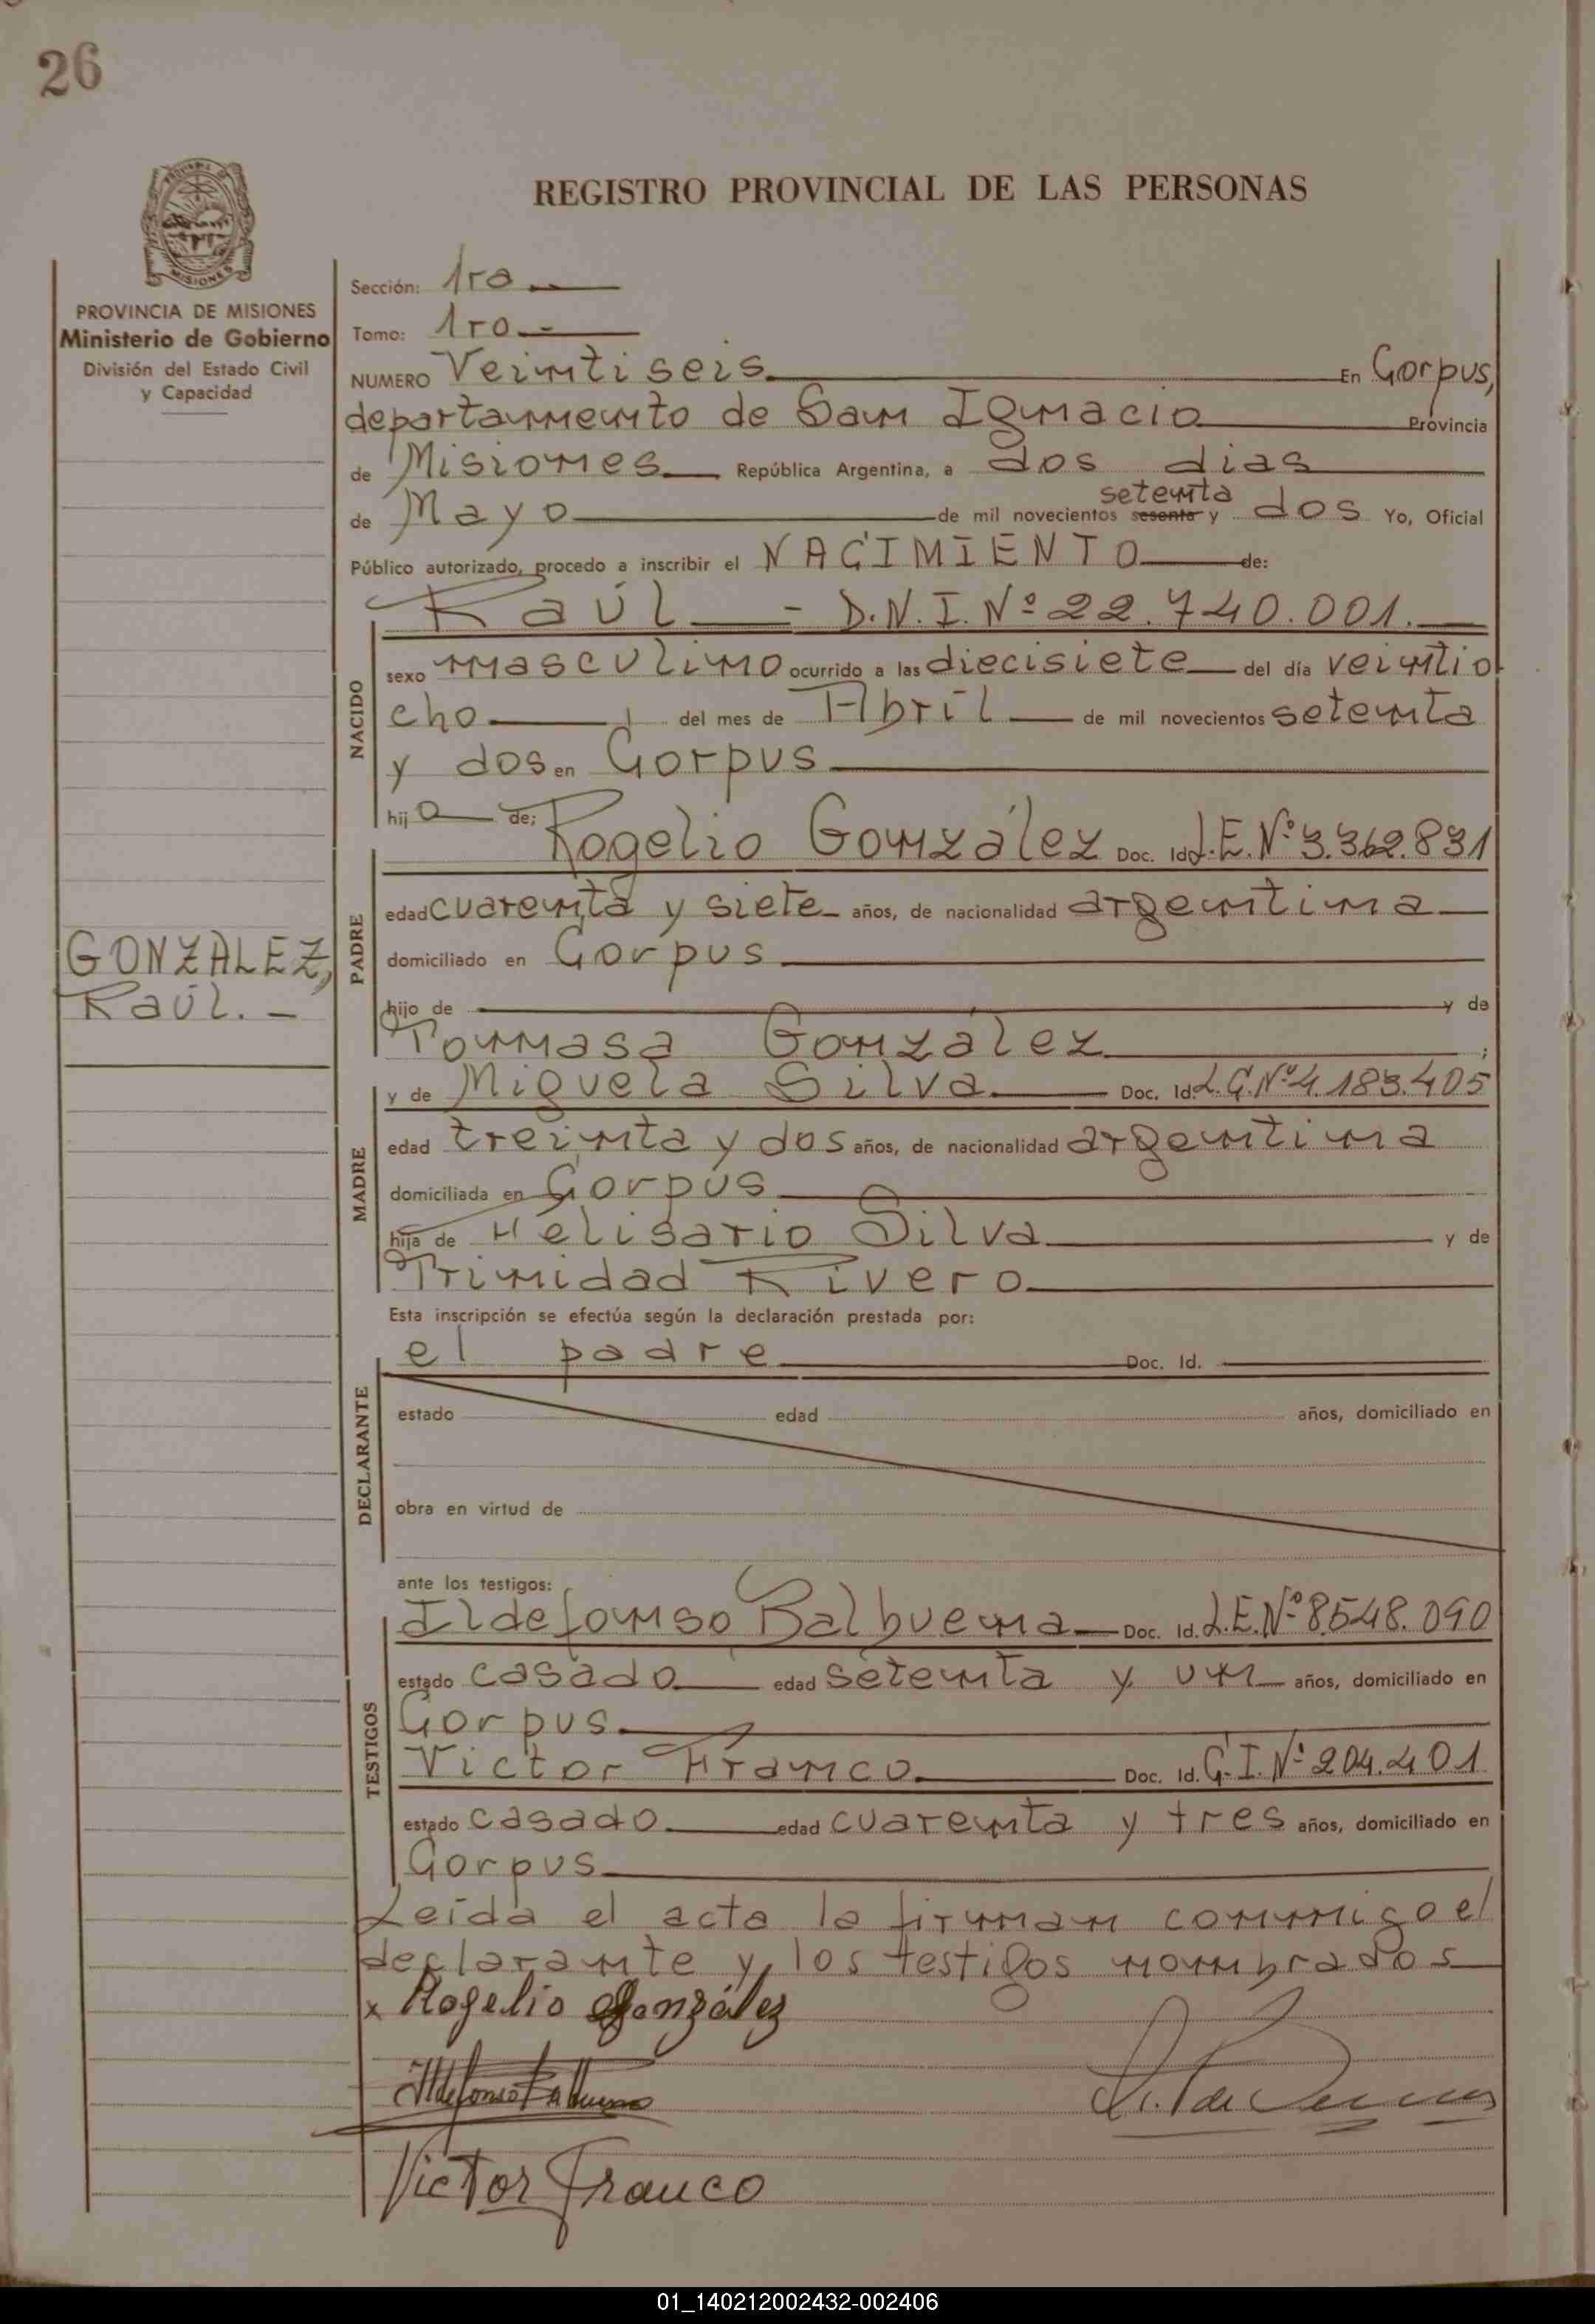 26
REGISTRO PROVINCIAL DE LAS PERSONAS
MISIONES
PROVINCIA DE MISIONES
Ministerio de Gobierno
División del Estado Civil
y Capacidad
GONZALEZ,
Raúl. -
Sección: 1ra
Tomo: 1ro -
NUMERO Veintiseis En Corpus,
departamento de San Ignacio Provincia
de Misiones República Argentina, a dos dias
de Mayo de mil novecientos sesenta setenta y dos Yo, Oficial
Público autorizado, procedo a inscribir el NACIMIENTO de:
Raúl - D.N.I. Nº 22.740.001.
NACIDO
sexo masculino ocurrido a las diecisiete del día veintio
cho del mes de Abril de mil novecientos setenta
y dos en Corpus
hijo de:
PADRE
Rogelio González Doc. Id. L.E. Nº 3.362.831
edad cuarenta y siete años, de nacionalidad argentina
domiciliado en Corpus
hijo de y de
Tomasa González ;
MADRE
y de Miguela Silva Doc. Id. L.C. Nº 4.183.405
edad treinta y dos años, de nacionalidad argentina
domiciliada en Corpus
hija de Helisario Silva y de
Trinidad Rivero
Esta inscripción se efectúa según la declaración prestada por:
DECLARANTE
el padre Doc. Id.
estado edad años, domiciliado en
obra en virtud de
ante los testigos:
TESTIGOS
Ildefonso Balbuena Doc. Id. L.E. Nº 8548.090
estado casado edad setenta y un años, domiciliado en
Corpus
Victor Franco Doc. Id. C.I. Nº 204.401
estado casado edad cuarenta y tres años, domiciliado en
Corpus
Leída el acta la firman conmigo el
declarante y los testigos nombrados
x Rogelio González
Ildefonso Balbuena
Victor Franco
01_140212002432-002406